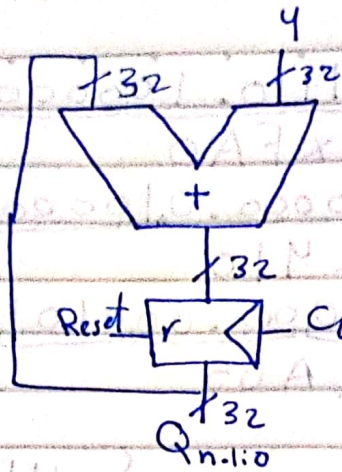 4
32
32
+
32
Reset
r
32
Qn-1:0